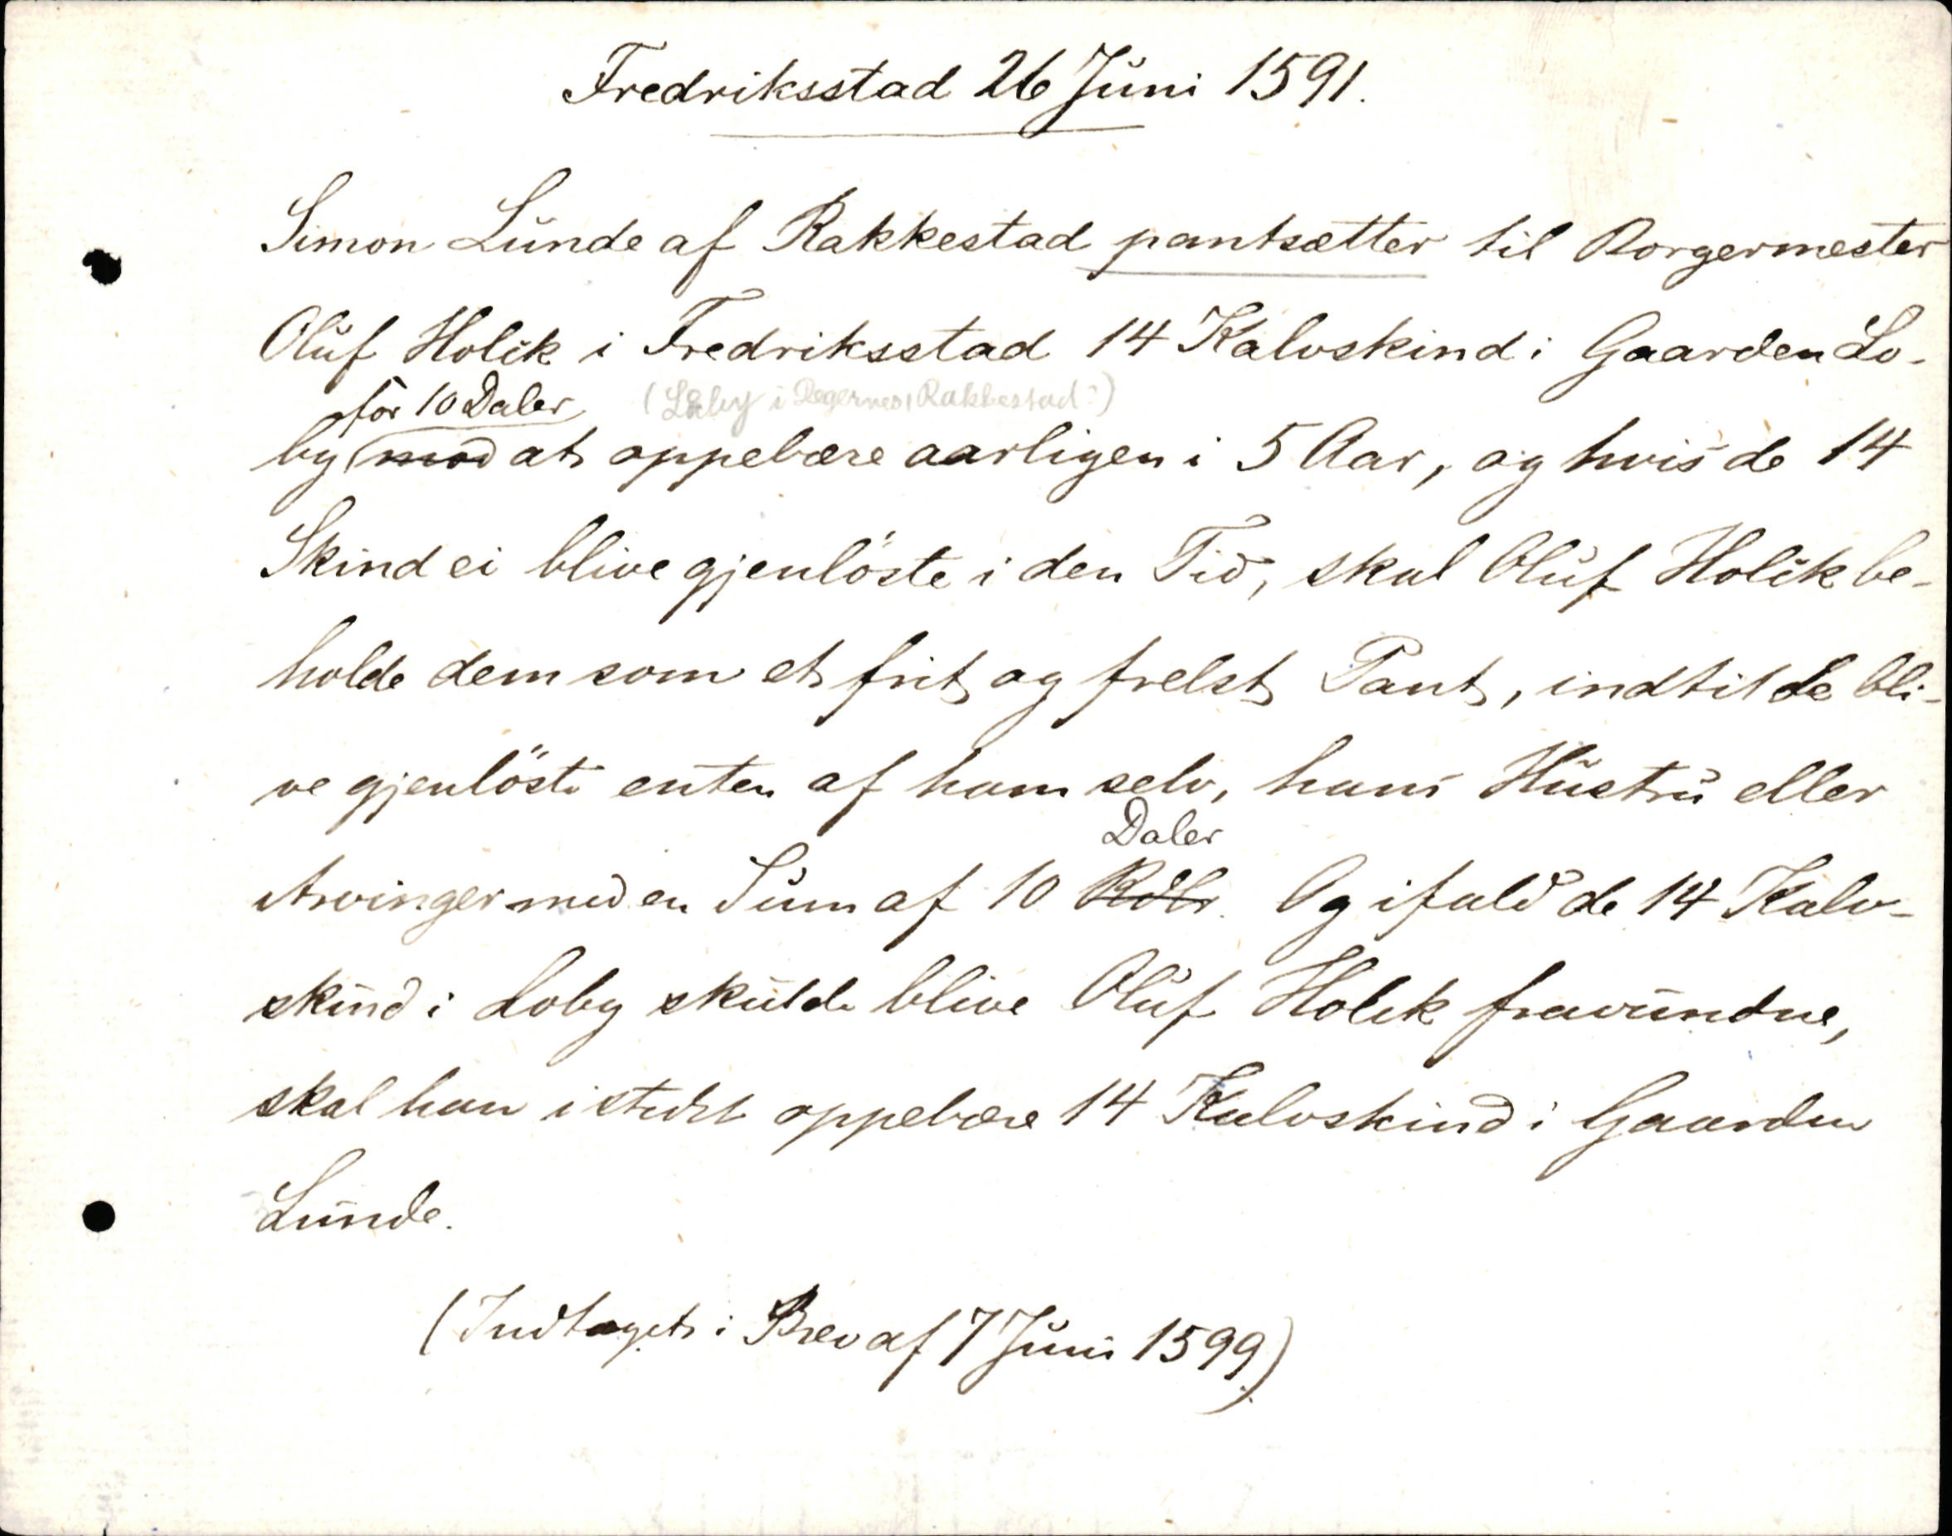 Fredriksstad 26 Juni 1591.
Simon Lunde af Rakkestad pantsætter til Borgermester
Oluf Holck i Fredriksstad 14 Kalvskind i Gaarden Lo-
for 10 Daler (Løby i Degernes, Rakkestad?)
by mod at oppebære aarligen i 5 Aar, og hvis de 14
Skind ei blive gjenlöste i den Tid, skal Oluf Holck be-
holde dem som et frit og frelst Pant, indtil de bli-
ve gjenlöste enten af ham selv, hans Hustru eller
Daler
Arvinger med en Sum af 10 Rdlr. Og ifald de 14 Kalv-
skind i Loby skulde blive Oluf Holck fravundne,
skal han istedet oppebære 14 Kalvskind i Gaarden
Lunde.
(Indtaget i Brev af 7 Juni 1599.)